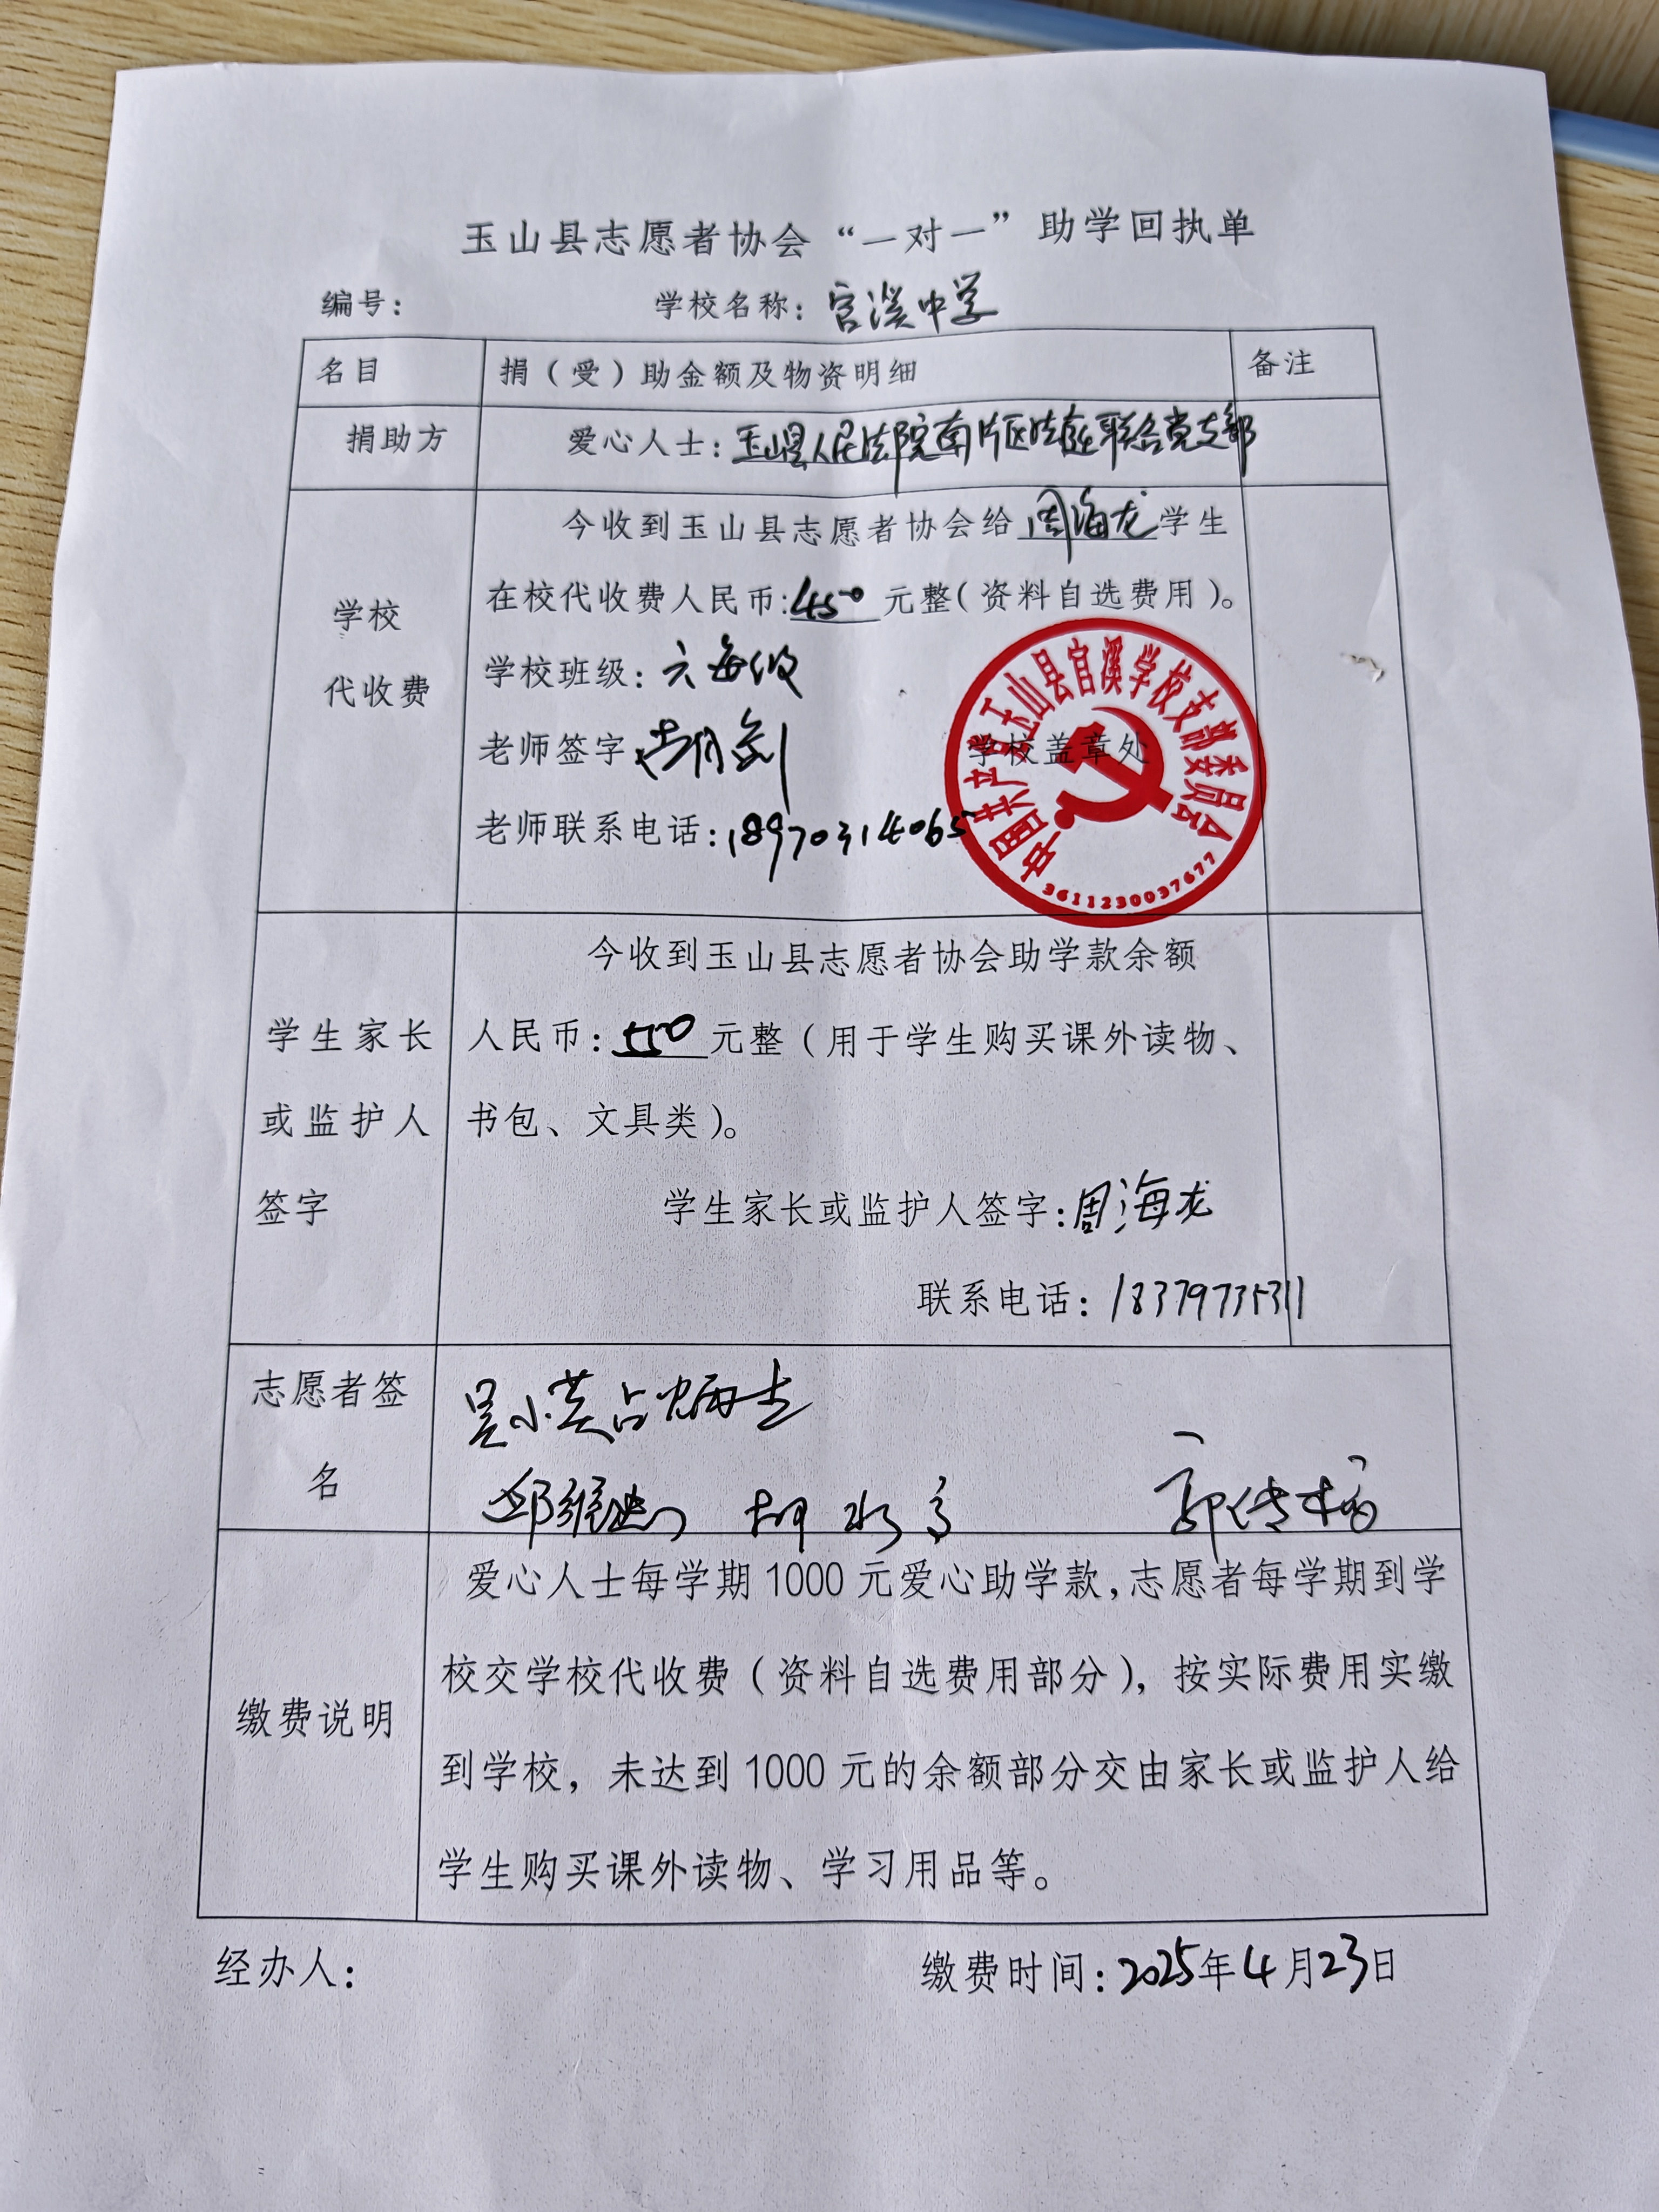 玉山县志愿者协会“一对一”助学回执单
编号： 学校名称：官溪中学
名目 捐（受）助金额及物资明细 备注
捐助方 爱心人士：玉山县人民法院南片区法庭联合党支部
学校
代收费
今收到玉山县志愿者协会给周海龙学生
在校代收费人民币:450元整（资料自选费用）。
学校班级：六年级
老师签字
学校盖章处
老师联系电话：18970314065
中国共产党玉山县官溪学校支部委员会
3611230037677
学生家长
或监护人
签字
今收到玉山县志愿者协会助学款余额
人民币：550元整（用于学生购买课外读物、
书包、文具类）。
学生家长或监护人签字：周海龙
联系电话：18379735311
志愿者签
名
吴小英 占炳生
胡水高 郭传榕
缴费说明
爱心人士每学期1000元爱心助学款，志愿者每学期到学
校交学校代收费（资料自选费用部分），按实际费用实缴
到学校，未达到1000元的余额部分交由家长或监护人给
学生购买课外读物、学习用品等。
经办人： 缴费时间：2025年4月23日